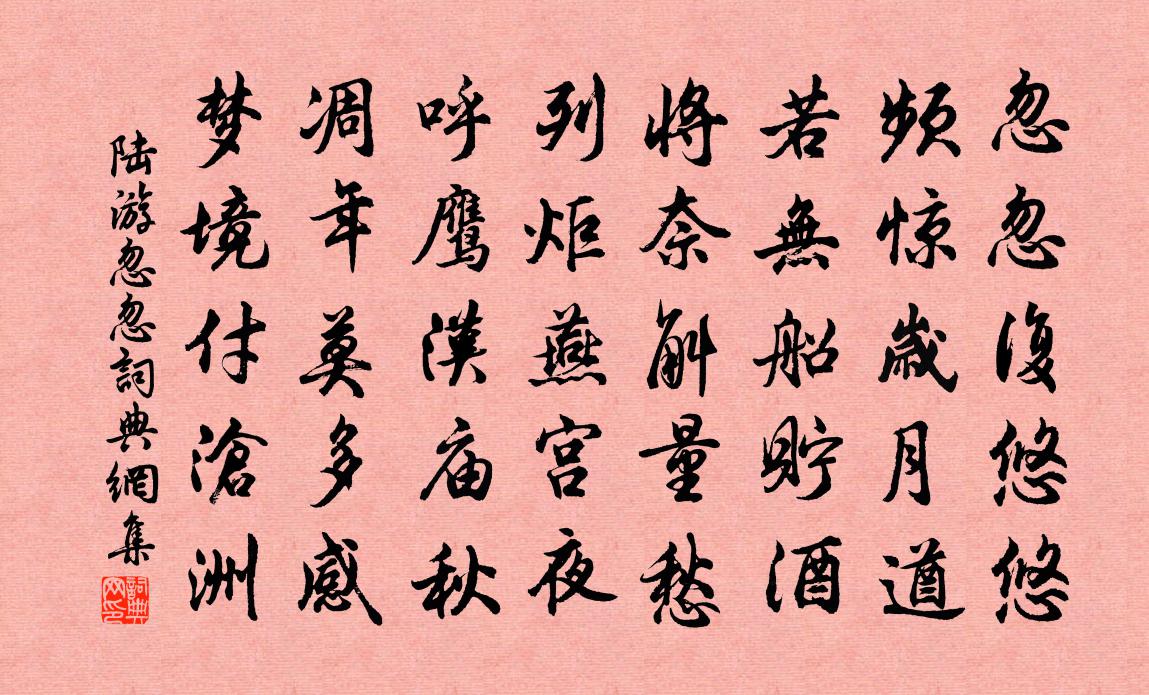 忽忽復悠悠
频惊歳月遒
若無船貯酒
将奈斛量愁
列炬燕宫夜
呼鹰漢庙秋
凋年莫多感
梦境付滄洲
陆游忽忽詞典網集
詞典网印